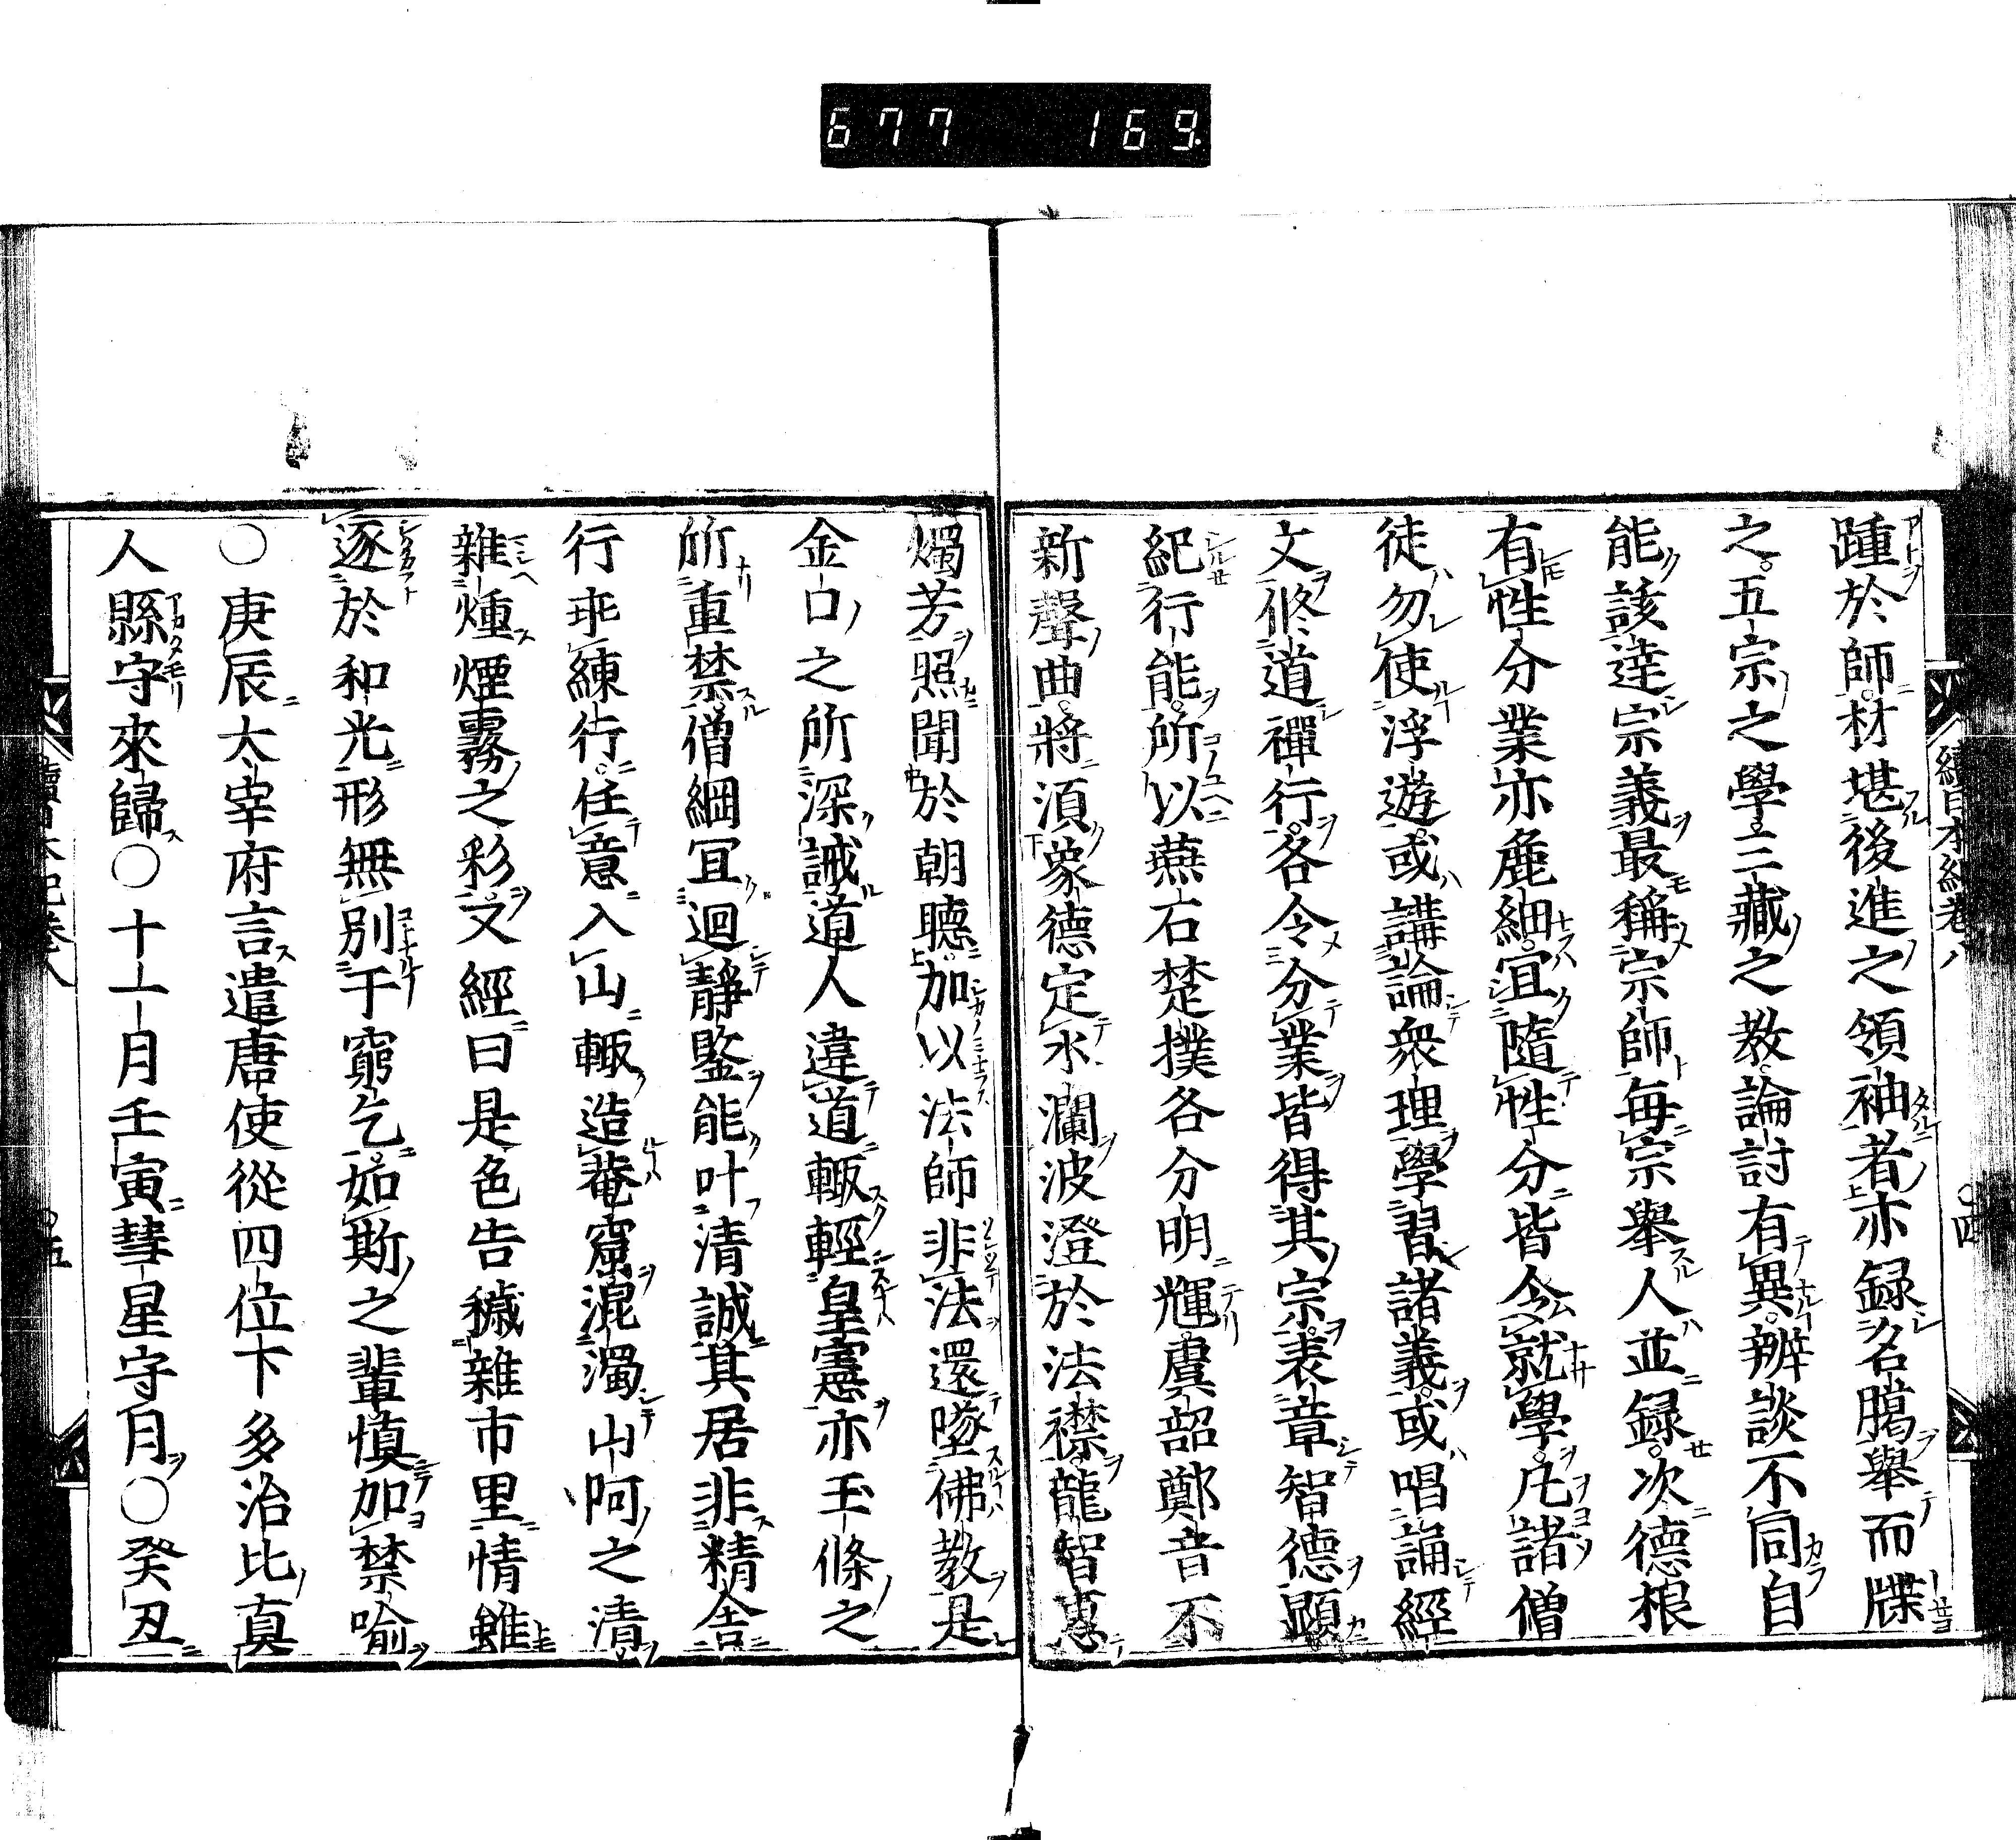 677 169
續日本紀卷八
○四
踵於師材堪後進之領袖者亦録名臈舉而牒
之五宗之學三藏之教論討有異辨談不同自
能該達宗義最稱宗師每宗舉人並録次德根
有性分業亦麁細宜隨性分皆令就學凡諸僧
徒勿使浮遊或講論衆理學習諸義或唱誦經
文修道禪行各令分業皆得其宗表章智德顯
紀行能所以燕石楚璞各分明輝虞韶鄭音不
新聲曲將須象德定水瀾波澄於法襟龍智惠
燭芳照聞於朝聽加以法師非法還墜佛教是
金口之所深誡道人違道輙輕皇憲亦玉條之
所重禁僧綱宜迴靜鑒能叶清誠其居非精舎
行乖練行任意入山輙造菴窟混濁山阿之清
雜燻煙霧之彩又經曰是色告穢雜市里情雖
逐於和光形無別于窮乞如斯之輩慎加禁喻
○庚辰太宰府言遣唐使從四位下多治比真
人縣守來歸○十一月壬寅彗星守月○癸丑
續日本紀卷八
○五